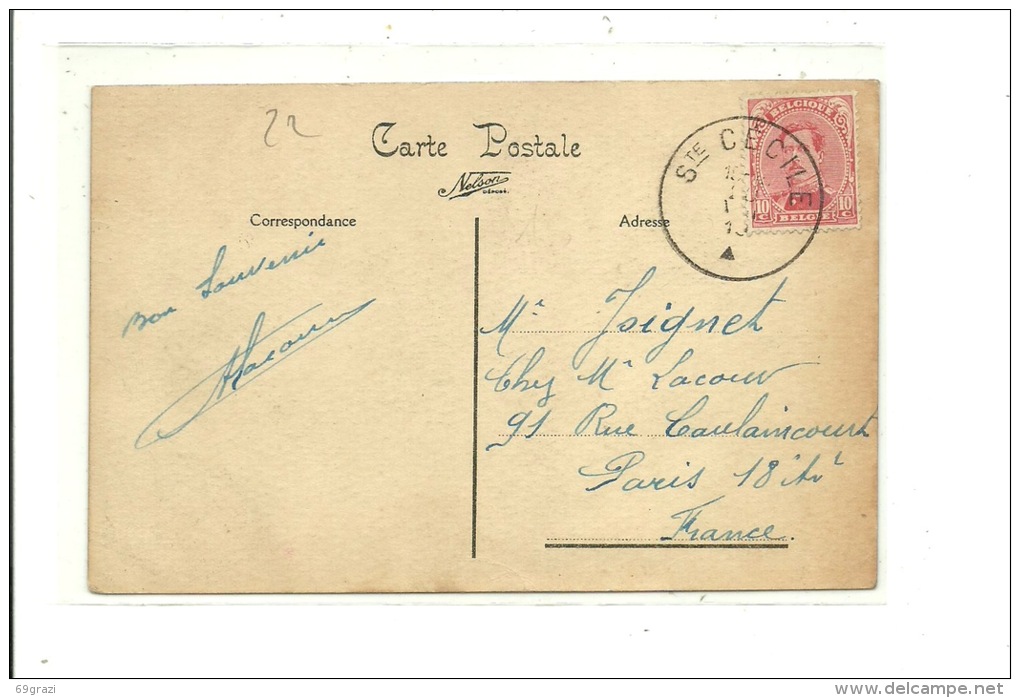 22
Carte Postale
Nelson
DÉPOSÉ.
BELGIQUE
10 C
10 C
BELGIË
STE CÉCILE
Correspondance
Adresse
Bon Souvenir
Lacour
Mr Joignet
Chez Mr Lacour
91 Rue Caulaincourt
Paris 18
France.
69grazi
delcampe.net